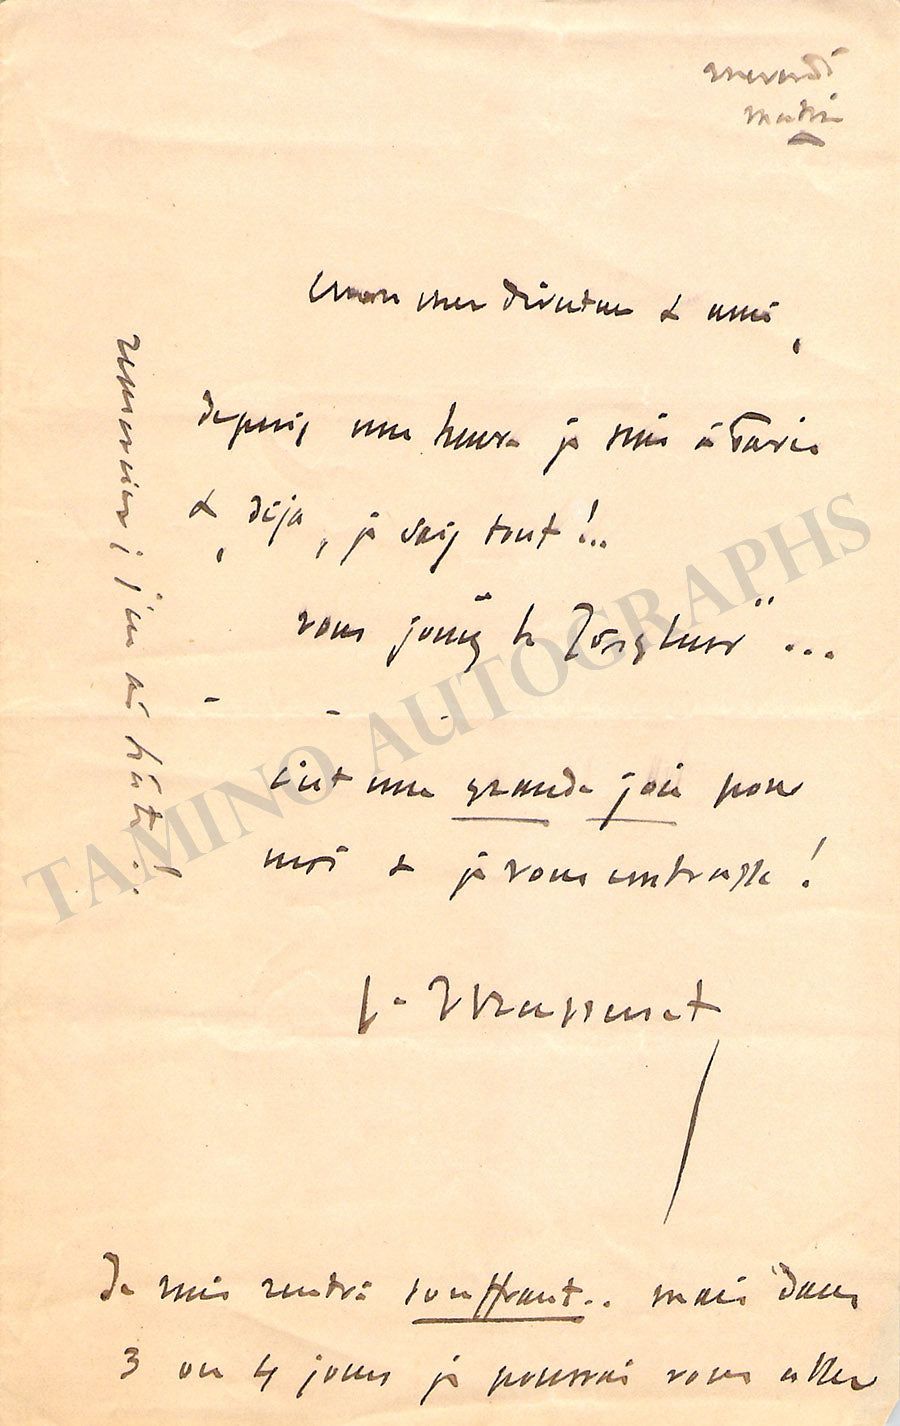 mercredi
matin
mon cher directeur & ami,
depuis une heure je suis à Paris
&, déjà, je sais tout!..
vous jouez le "Jongleur" ...
- - -
c'est une grande joie pour
moi & je vous embrasse!
J. Massenet
Je suis rentré souffrant.. mais dans
3 ou 4 jours je pourrai vous aller
remercier; j'en ai hâte!
TAMINO AUTOGRAPHS